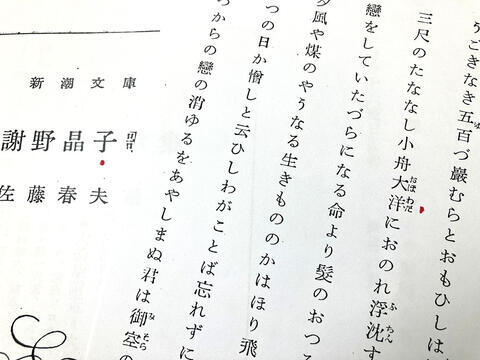 うごきなき五百づ巖むらとおもひしは
おほわだ
ふちん
三尺のたななし小舟大洋におのれ浮沈す
戀をしていたづらになる命より髮のおつ
夕風や煤のやうなる生きもののかはほり飛
つの日か憎しと云ひしわがことば忘れずに
からの戀の消ゆるをあやしまぬ君は御空の
新潮文庫
謝野晶子
佐藤春夫